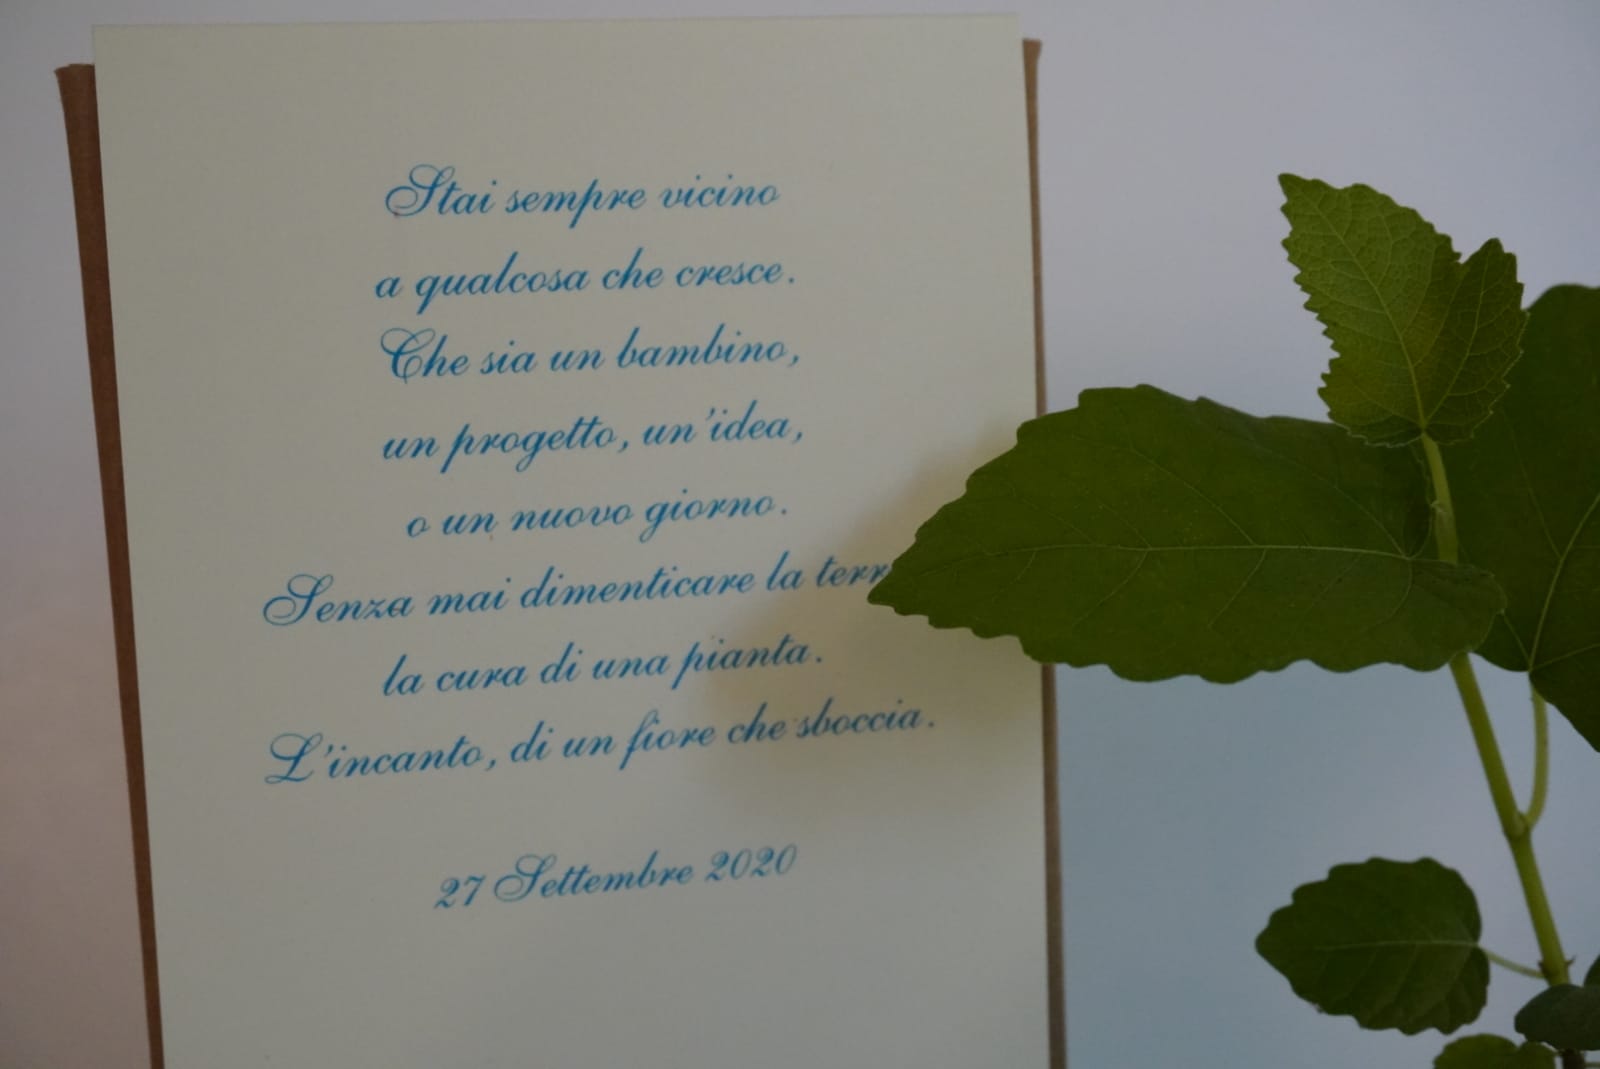 Stai sempre vicino
a qualcosa che cresce.
Che sia un bambino,
un progetto, un'idea,
o un nuovo giorno.
Senza mai dimenticare la
la cura di una pianta.
L'incanto, di un fiore che sboccia.
27 Settembre 2020